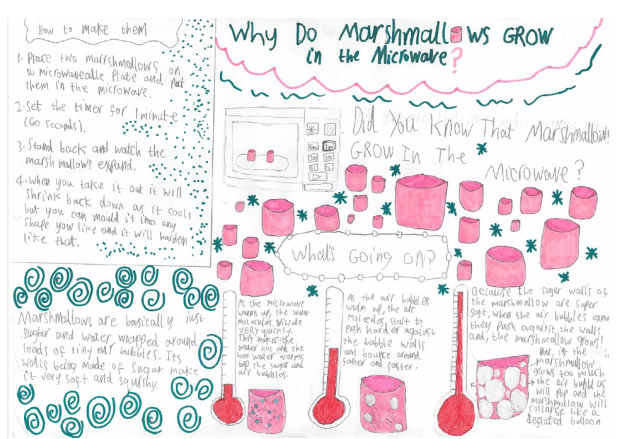 How to make them
1. Place two marshmallows on
a microwaveable Plate and Put
them in the microwave.
2. Set the timer for 1 minute
(60 seconds).
3. Stand back and watch the
marshmallows expand.
4. When you take it out it will
shrink back down as it cools
but you can mould it into any
shape you like and it will harden
like that.
Why Do Marshmallows GROW
in the Microwave?
Did You Know That Marshmallows
GROW In The
Microwave?
What's Going On?
Marshmallows are basically just
sugar and water wrapped around
loads of tiny air bubbles. Its
walls being made of sugar make
it very soft and squishy.
As the microwave
warms up, the water
molecules vibrate
very quickly.
This makes the
water hot and the
hot water warms
up the sugar and
air bubbles.
As the air bubbles
warm up, the air
molecules start to
push harder against
the bubble walls
and bounce around
faster and faster.
Because the sugar walls of
the marshmallow are super
soft, when the air bubbles expand
they push against the walls
and, the marshmallow grows!
But, if the
marshmallow
grows too much
the air bubbles
will pop and the
marshmallow will
collapse like a
deflated balloon